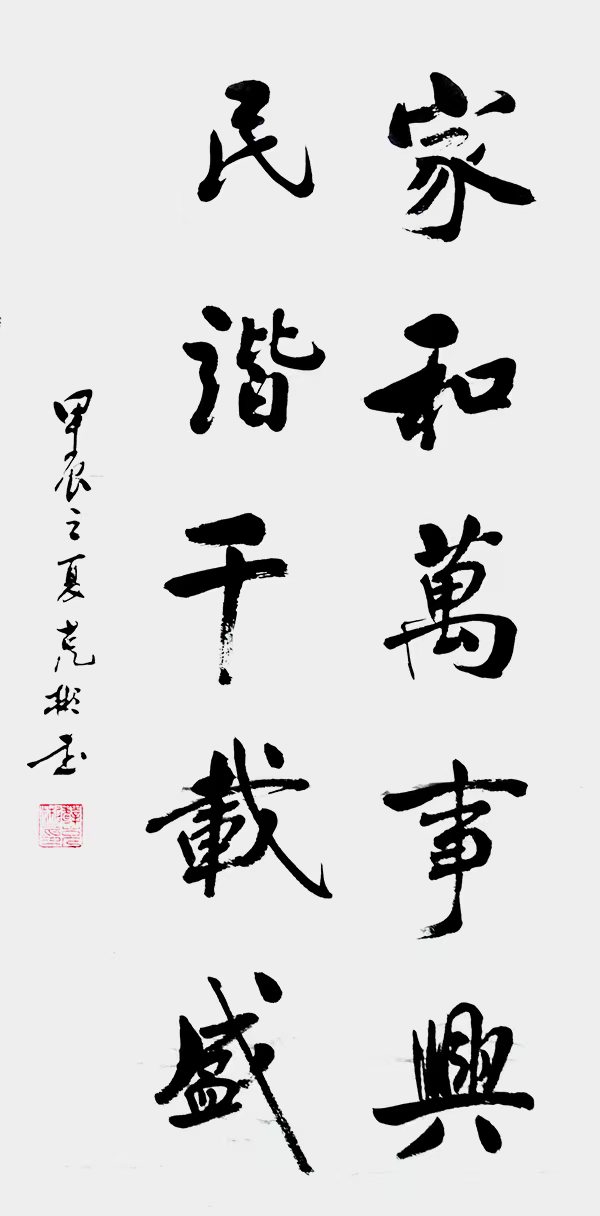 家和萬事興
民諧千載盛
甲辰之夏亮彬書